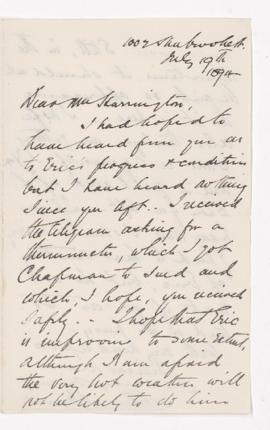 1002 Sherbrooke St.
July 19th
1894
Dear Mrs Harrington,
I had hoped to
have heard from you as
to Eric's progress & condition
but I have heard nothing
since you left. I received
the telegram asking for a
thermometer, which I got
Chapman to send and
which, I hope, you received
safely. - I hope that Eric
is improving to some extent,
although I am afraid
the very hot weather will
not be likely to do him